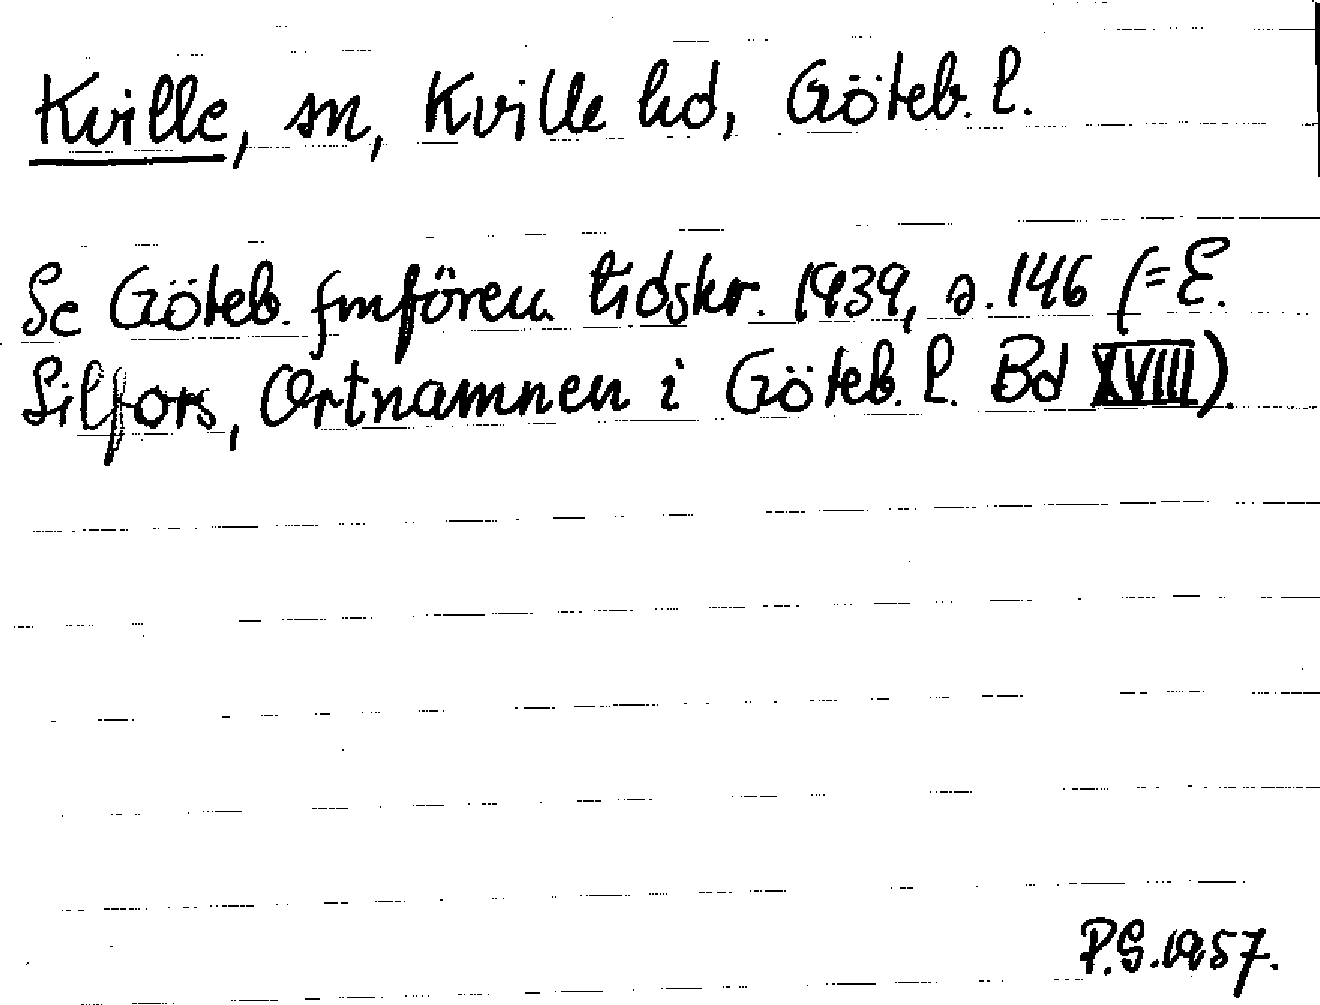 Kville, sn, Kville hd, Göteb. l.
Se Göteb. fmfören. tidskr. 1939, s. 146 (= E.
Silfors, Ortnamnen i Göteb. l. Bd XVIII).
P.G. 1957.